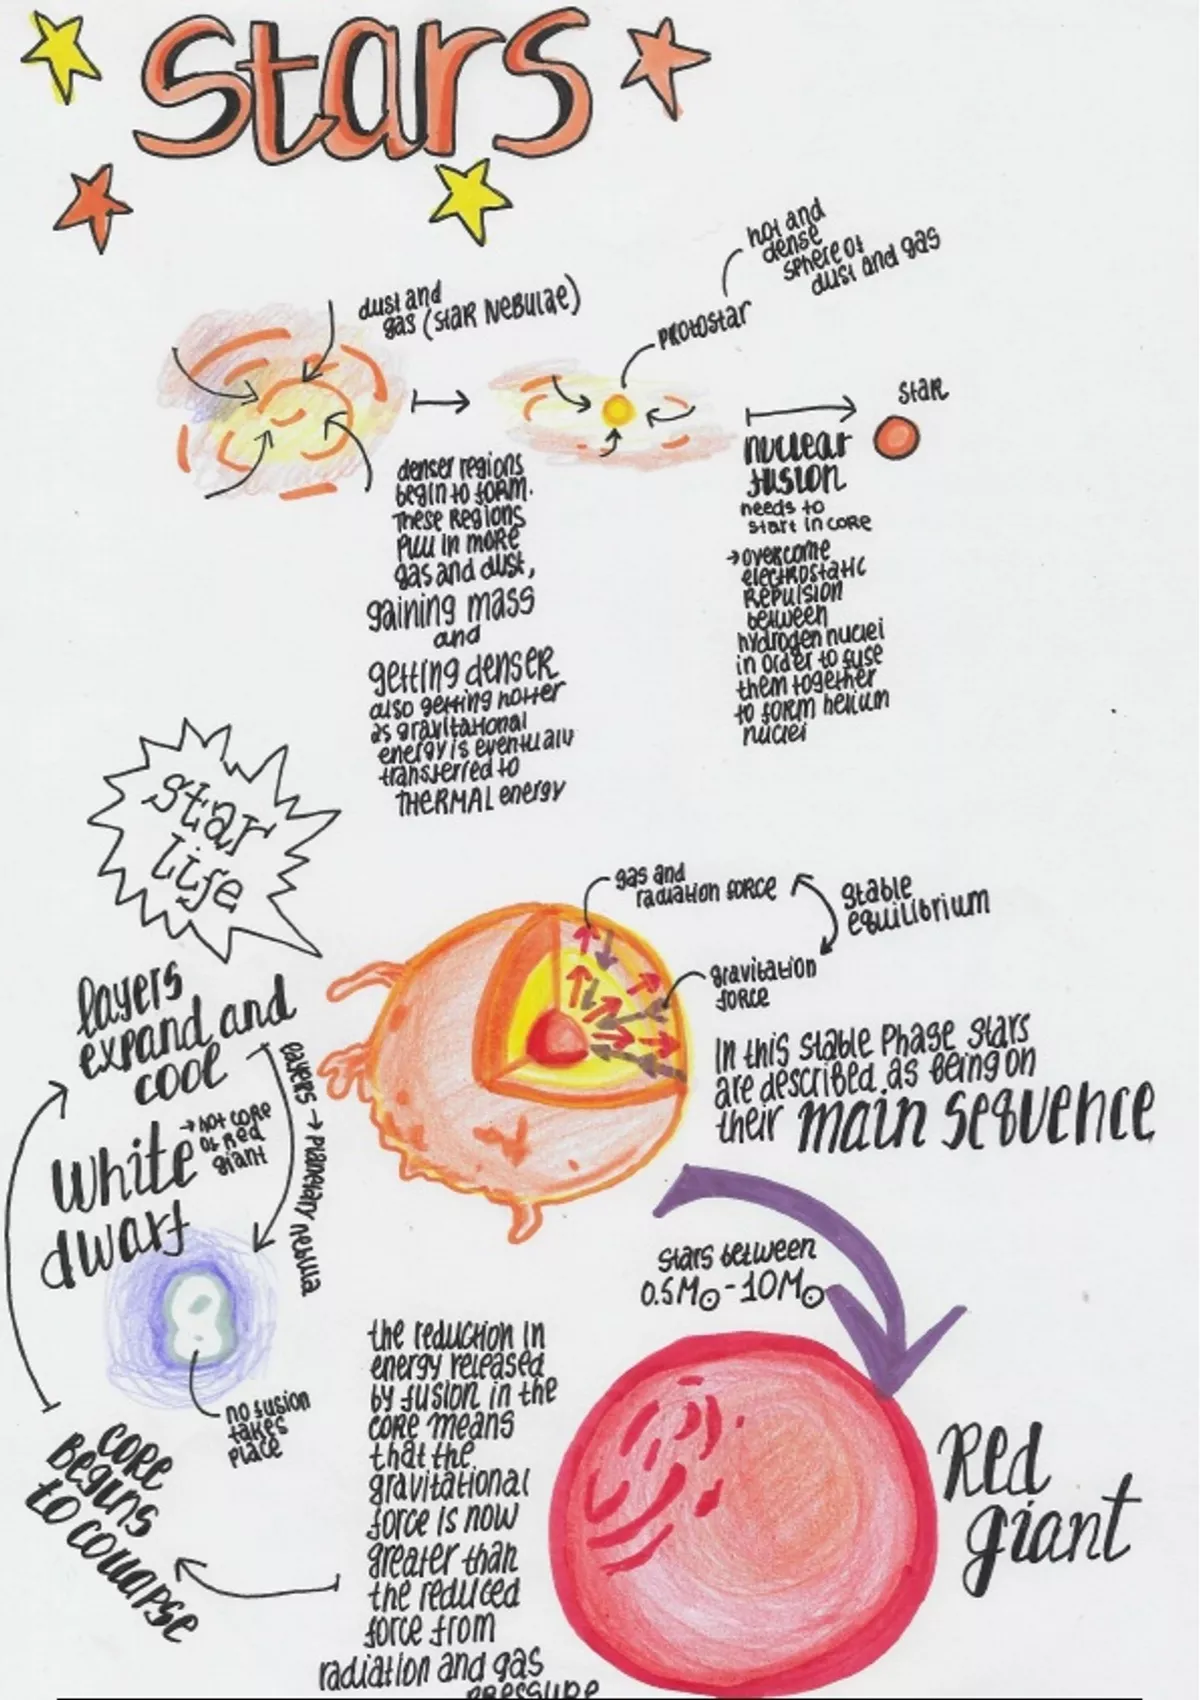 stars
dust and
gas (star Nebulae)
hot and
dense
sphere of
dust and gas
protostar
star
denser regions
begin to form.
These Regions
pull in more
gas and dust,
gaining mass
and
getting denser
also getting hotter
as gravitational
energy is eventually
transferred to
THERMAL energy
nuclear
fusion
needs to
start in core
→ overcome
electrostatic
Repulsion
between
hydrogen nuclei
in order to fuse
them together
to form helium
nuclei
star
life
gas and
radiation force
stable
equilibrium
gravitation
force
In this stable phase stars
are described as being on
their main sequence
layers
expand and
cool
layers → planetary nebula
white
dwarf
→ hot core
of red
giant
no fusion
takes
place
stars between
0.5M☉ - 10M☉
Red
giant
the reduction in
energy released
by fusion in the
core means
that the
gravitational
force is now
greater than
the reduced
force from
radiation and gas
pressure
core
Begins
to collapse